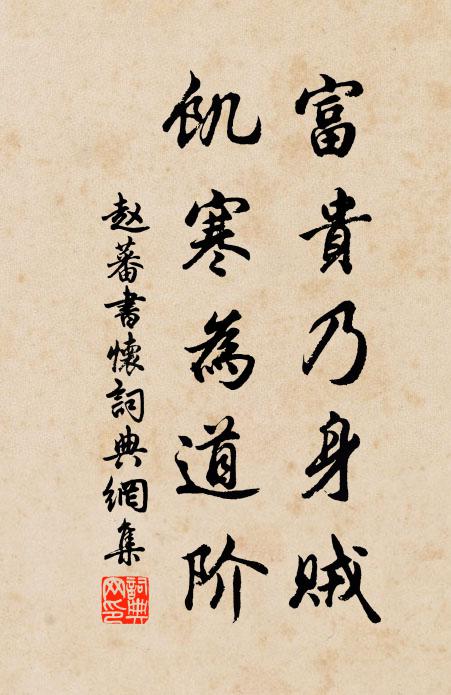 富貴乃身贼
飢寒為道阶
赵蕃書懷詞典網集
詞典网印